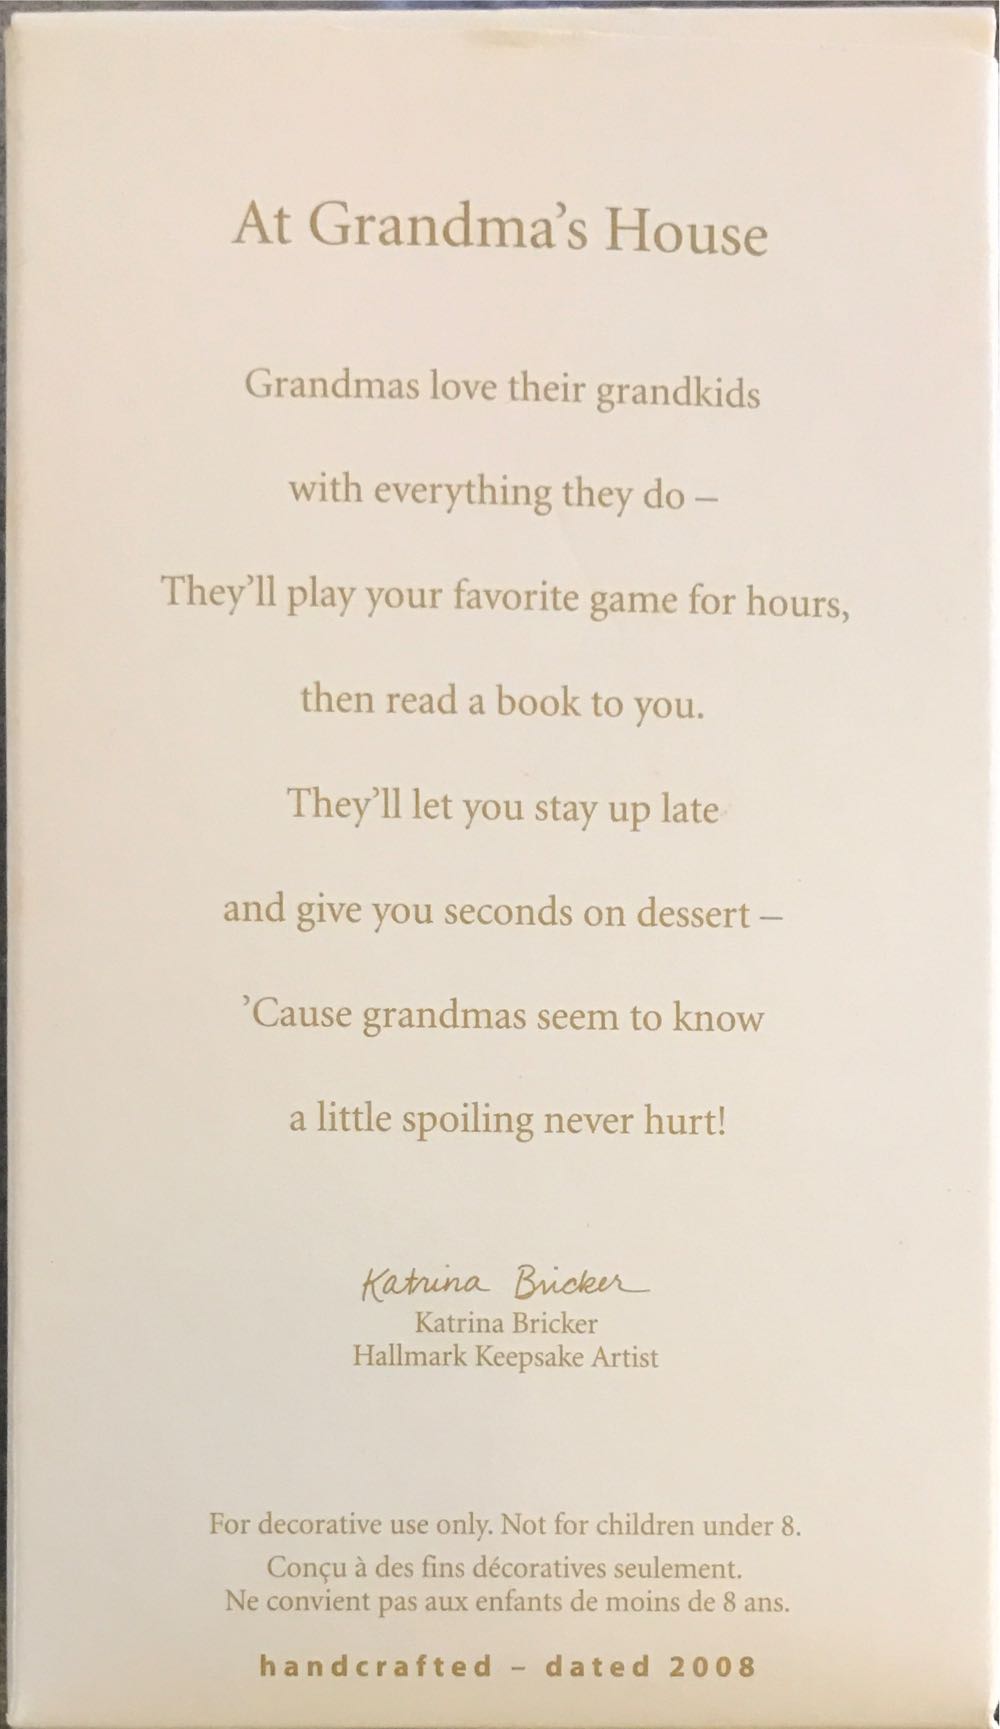 At Grandma’s House
Grandmas love their grandkids
with everything they do –
They’ll play your favorite game for hours,
then read a book to you.
They’ll let you stay up late
and give you seconds on dessert –
’Cause grandmas seem to know
a little spoiling never hurt!
Katrina Bricker
Katrina Bricker
Hallmark Keepsake Artist
For decorative use only. Not for children under 8.
Conçu à des fins décoratives seulement.
Ne convient pas aux enfants de moins de 8 ans.
handcrafted – dated 2008